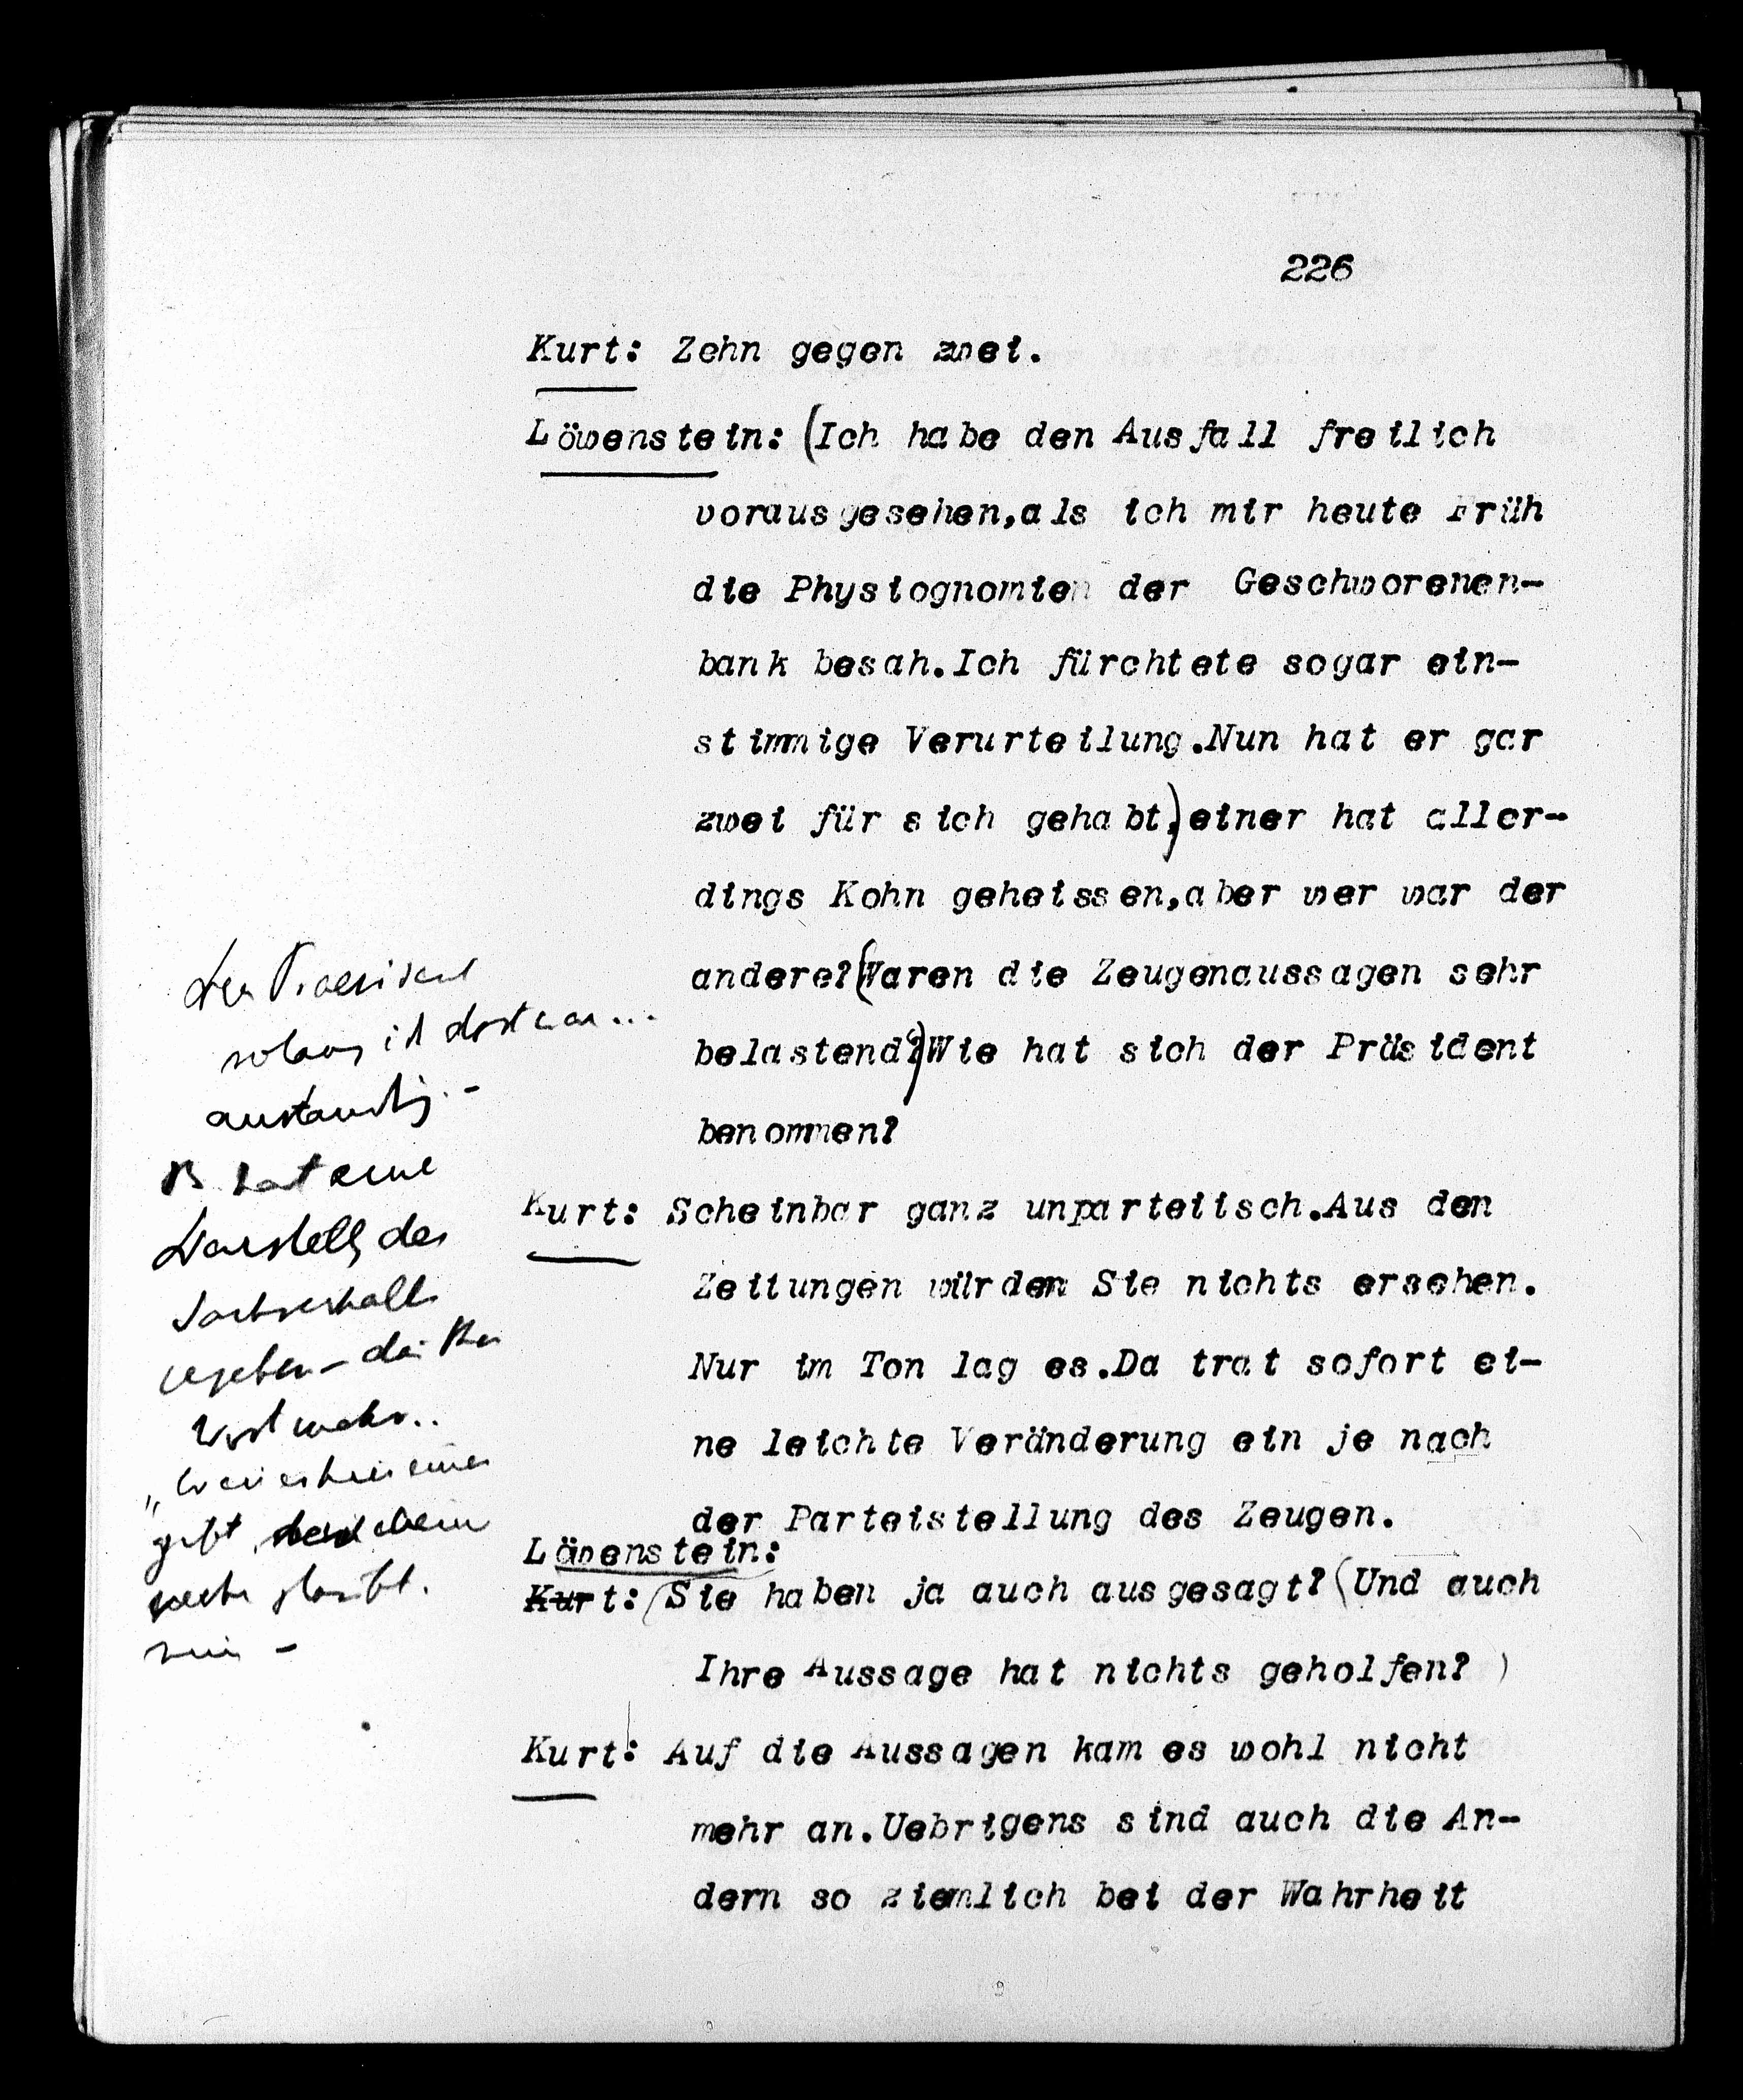 226
Kurt: Zehn gegen zwei.
Löwenstein: (Ich habe den Ausfall freilich
vorausgesehen,als ich mir heute Früh
die Physiognomien der Geschworenen-
bank besah.Ich fürchtete sogar ein-
stimmige Verurteilung.Nun hat er gar
zwei für sich gehabt,) einer hat aller-
dings Kohn geheissen,aber wer war der
andere?(Waren die Zeugenaussagen sehr
belastend?)Wie hat sich der Präsident
benommen?
Kurt: Scheinbar ganz unparteiisch.Aus den
Zeitungen würden Sie nichts ersehen.
Nur im Ton lag es.Da trat sofort ei-
ne leichte Veränderung ein je nach
der Parteistellung des Zeugen.
Löwenstein:
Kurt: (Sie haben ja auch ausgesagt?(Und auch
Ihre Aussage hat nichts geholfen? )
Kurt: Auf die Aussagen kam es wohl nicht
mehr an.Uebrigens sind auch die An-
dern so ziemlich bei der Wahrheit
Der Praesident
anständig. -
hat eine
Darstellg des
Sachverhalt
gegeben - die